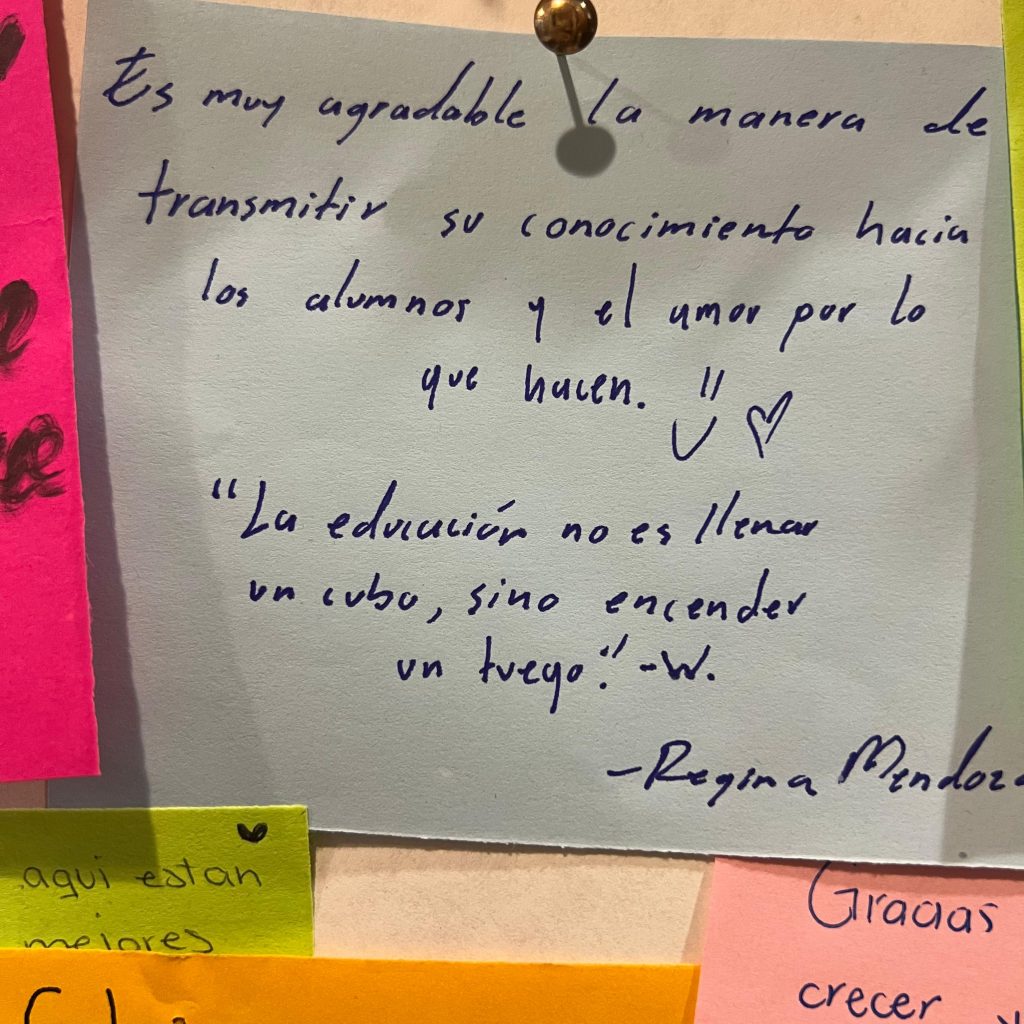 Es muy agradable la manera de
transmitir su conocimiento hacia
los alumnos y el amor por lo
que hacen.
"La educación no es llenar
un cubo, sino encender
un fuego." -W.
-Regina Mendoza
aqui estan
mejores
Gracias
crecer